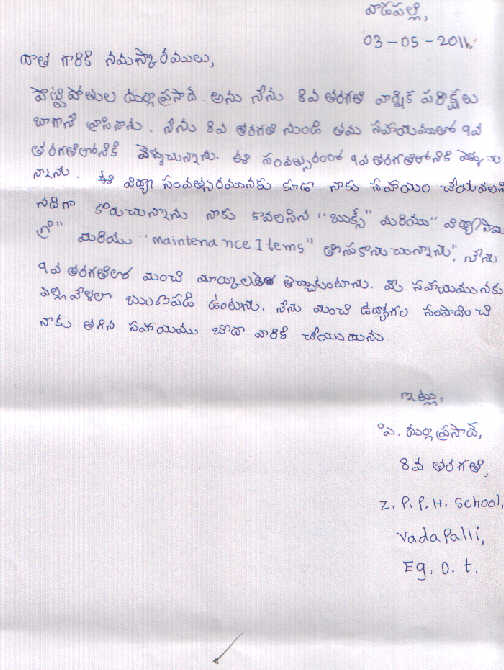 వాడపల్లి,
03-05-2011.
దాత గారికి నమస్కారములు,
దుర్గాప్రసాద్ అను నేను 8వ తరగతి వార్షిక పరీక్షలు
బాగానే వ్రాసినాను. నేను 8వ తరగతి నుండి తమ సహాయముతో 9వ
తరగతిలోనికి వెళ్ళుచున్నాను. ఈ సంవత్సరంలో 9వ తరగతిలోనికి వెళ్ళుచు
న్నాను. ఈ విద్యా సంవత్సరమునకు కూడా నాకు సహాయం చేయవలసి
నదిగా కోరుచున్నాను నాకు కావలసిన "బుక్స్" మరియు "విద్యాసామా
గ్రి" మరియు "maintenance Items" తీసుకొనుచున్నాను", నేను
9వ తరగతిలో మంచి మార్కులతో తెచ్చుకుంటాను. మీ సహాయమునకు
ఎల్లవేళలా ఋణపడి ఉంటాను. నేను మంచి ఉద్యోగం సంపాదించి
నాకు తగిన సహాయము బీద వారికి చేయుదును.
ఇట్లు,
పి. దుర్గాప్రసాద్,
8వ తరగతి,
Z. P. P. H. School,
Vadapalli,
Eg. D. t.